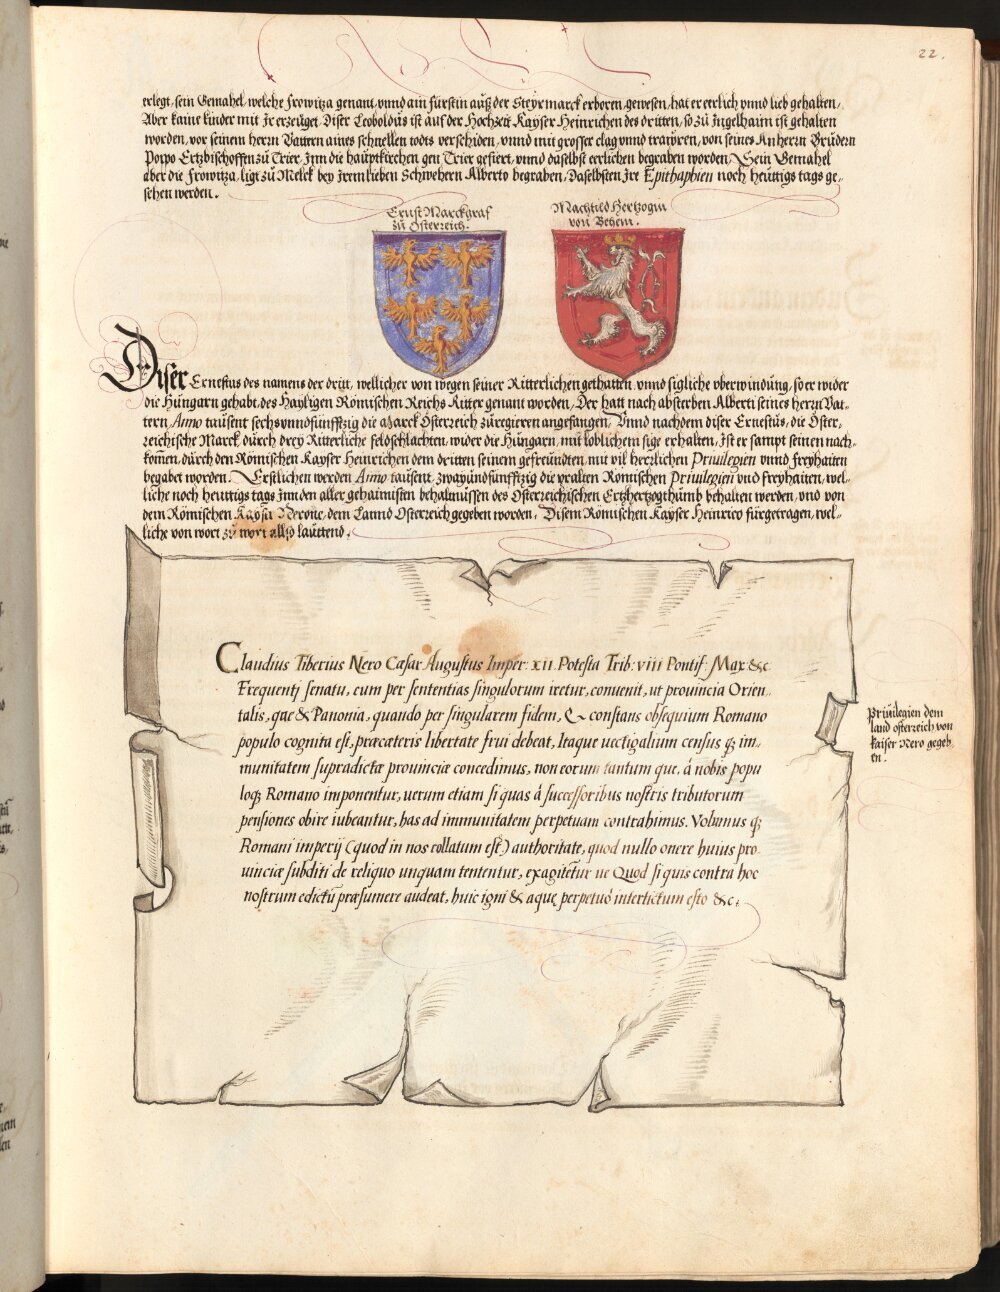 22.
erlegt, sein Gemahel, welche Frowitza genant, vnnd ain fürstin auß der Steyrmarck erboren, gewesen, hat er eerlich vnnd lieb gehalten,
Aber kaine kinder mit Jr erzeuget. Diser Leoboldus ist auf der Hochzeit Kayser Heinrichen des dritten, so zü Jngelhaim ist gehalten
worden, vor seinem herrn Vattern aines schnellen todts verschiden, vnnd mit grosser clag vnnd trawren, von seines Anherrn Brüdern
Popo Ertzbischoffen zü Trier, Jnn die hauptkirchen gen Trier gefiert, vnnd daselbst eerlichen begraben worden, Sein Gemahel
aber die Frowitza, ligt zü Melck bey Jrem lieben Schwehern Alberto begraben, Daselbsten Jre Epithaphien noch heüttigs tags ge-
sehen werden.
Ernst Marckgraf
zü Österreich.
Machtild Hertzogin
von Behem.
Diser Ernestus des namens der drit, wellicher von wegen seiner Ritterlichen gethatten, vnnd sigliche vberwindung, so er wider
die Hungarn gehabt, des Hayligen Römischen Reichs Ritter genant worden, Der hatt nach absterben Alberti seines herrn Vat-
tern, Anno tausent sechsvnndfünfftzig die Marck Österreich züregieren angefangen. Vnnd nachdem diser Ernestus, die Öster-
reichische Marck, durch drey Ritterliche feldschlachten, wider die Hungarn, mit loblichem sige erhalten, Jst er sampt seinen nach-
komen, durch den Römischen Kayser Heinrichen dem dritten seinem gefreundten, mit vil herrlichen Priuilegien vnnd freyhaiten
begabet worden. Erstlichen werden Anno tausent, zwayundfünfftzig die vralten Römischen Priuilegien vnd freyhaiten, wel-
liche noch heuttigs tags Jnn den aller gehaimisten behaltnussen des Österreichischen Ertzhertzogthumb behalten werden, vnd von
dem Römischen Kayser Nerone, dem Lannd Österreich gegeben worden, Disem Römischen Kayser Heinrico fürgetragen, wel-
liche von wort zü wort also lauttend.
Claudius Tiberius Nero Cæsar Augustus Imper: XII. Potesta Trib: VIII Pontif: Max &c
Frequentj senatu, cum per sententias singulorum iretur, conuenit, ut prouincia Orien-
talis, quæ & Panonia, quando per singularem fidem, & constans obsequium Romano
populo cognita est, præcæteris libertate frui debeat, Itaque uectigalium census q; im-
munitatem supradictæ prouinciæ concedimus, non eorum tantum que, à nobis popu
loq; Romano imponentur, uerum etiam si quas à successoribus nostris tributorum
pensiones obire iubeantur, has ad immunitatem perpetuam contrahimus. Volumus q;
Romani imperij (quod in nos collatum est) authoritate, quod nullo onere huius pro-
uinciæ subditi de reliquo unquam tententur, exagitetur ue Quod si quis contra hoc
nostrum edictũ præsumere audeat, huic igni & aquę perpetuò interdictum esto &c.
Priuilegien dem
land osterreich von
Kaiser Nero gegeb-
en.